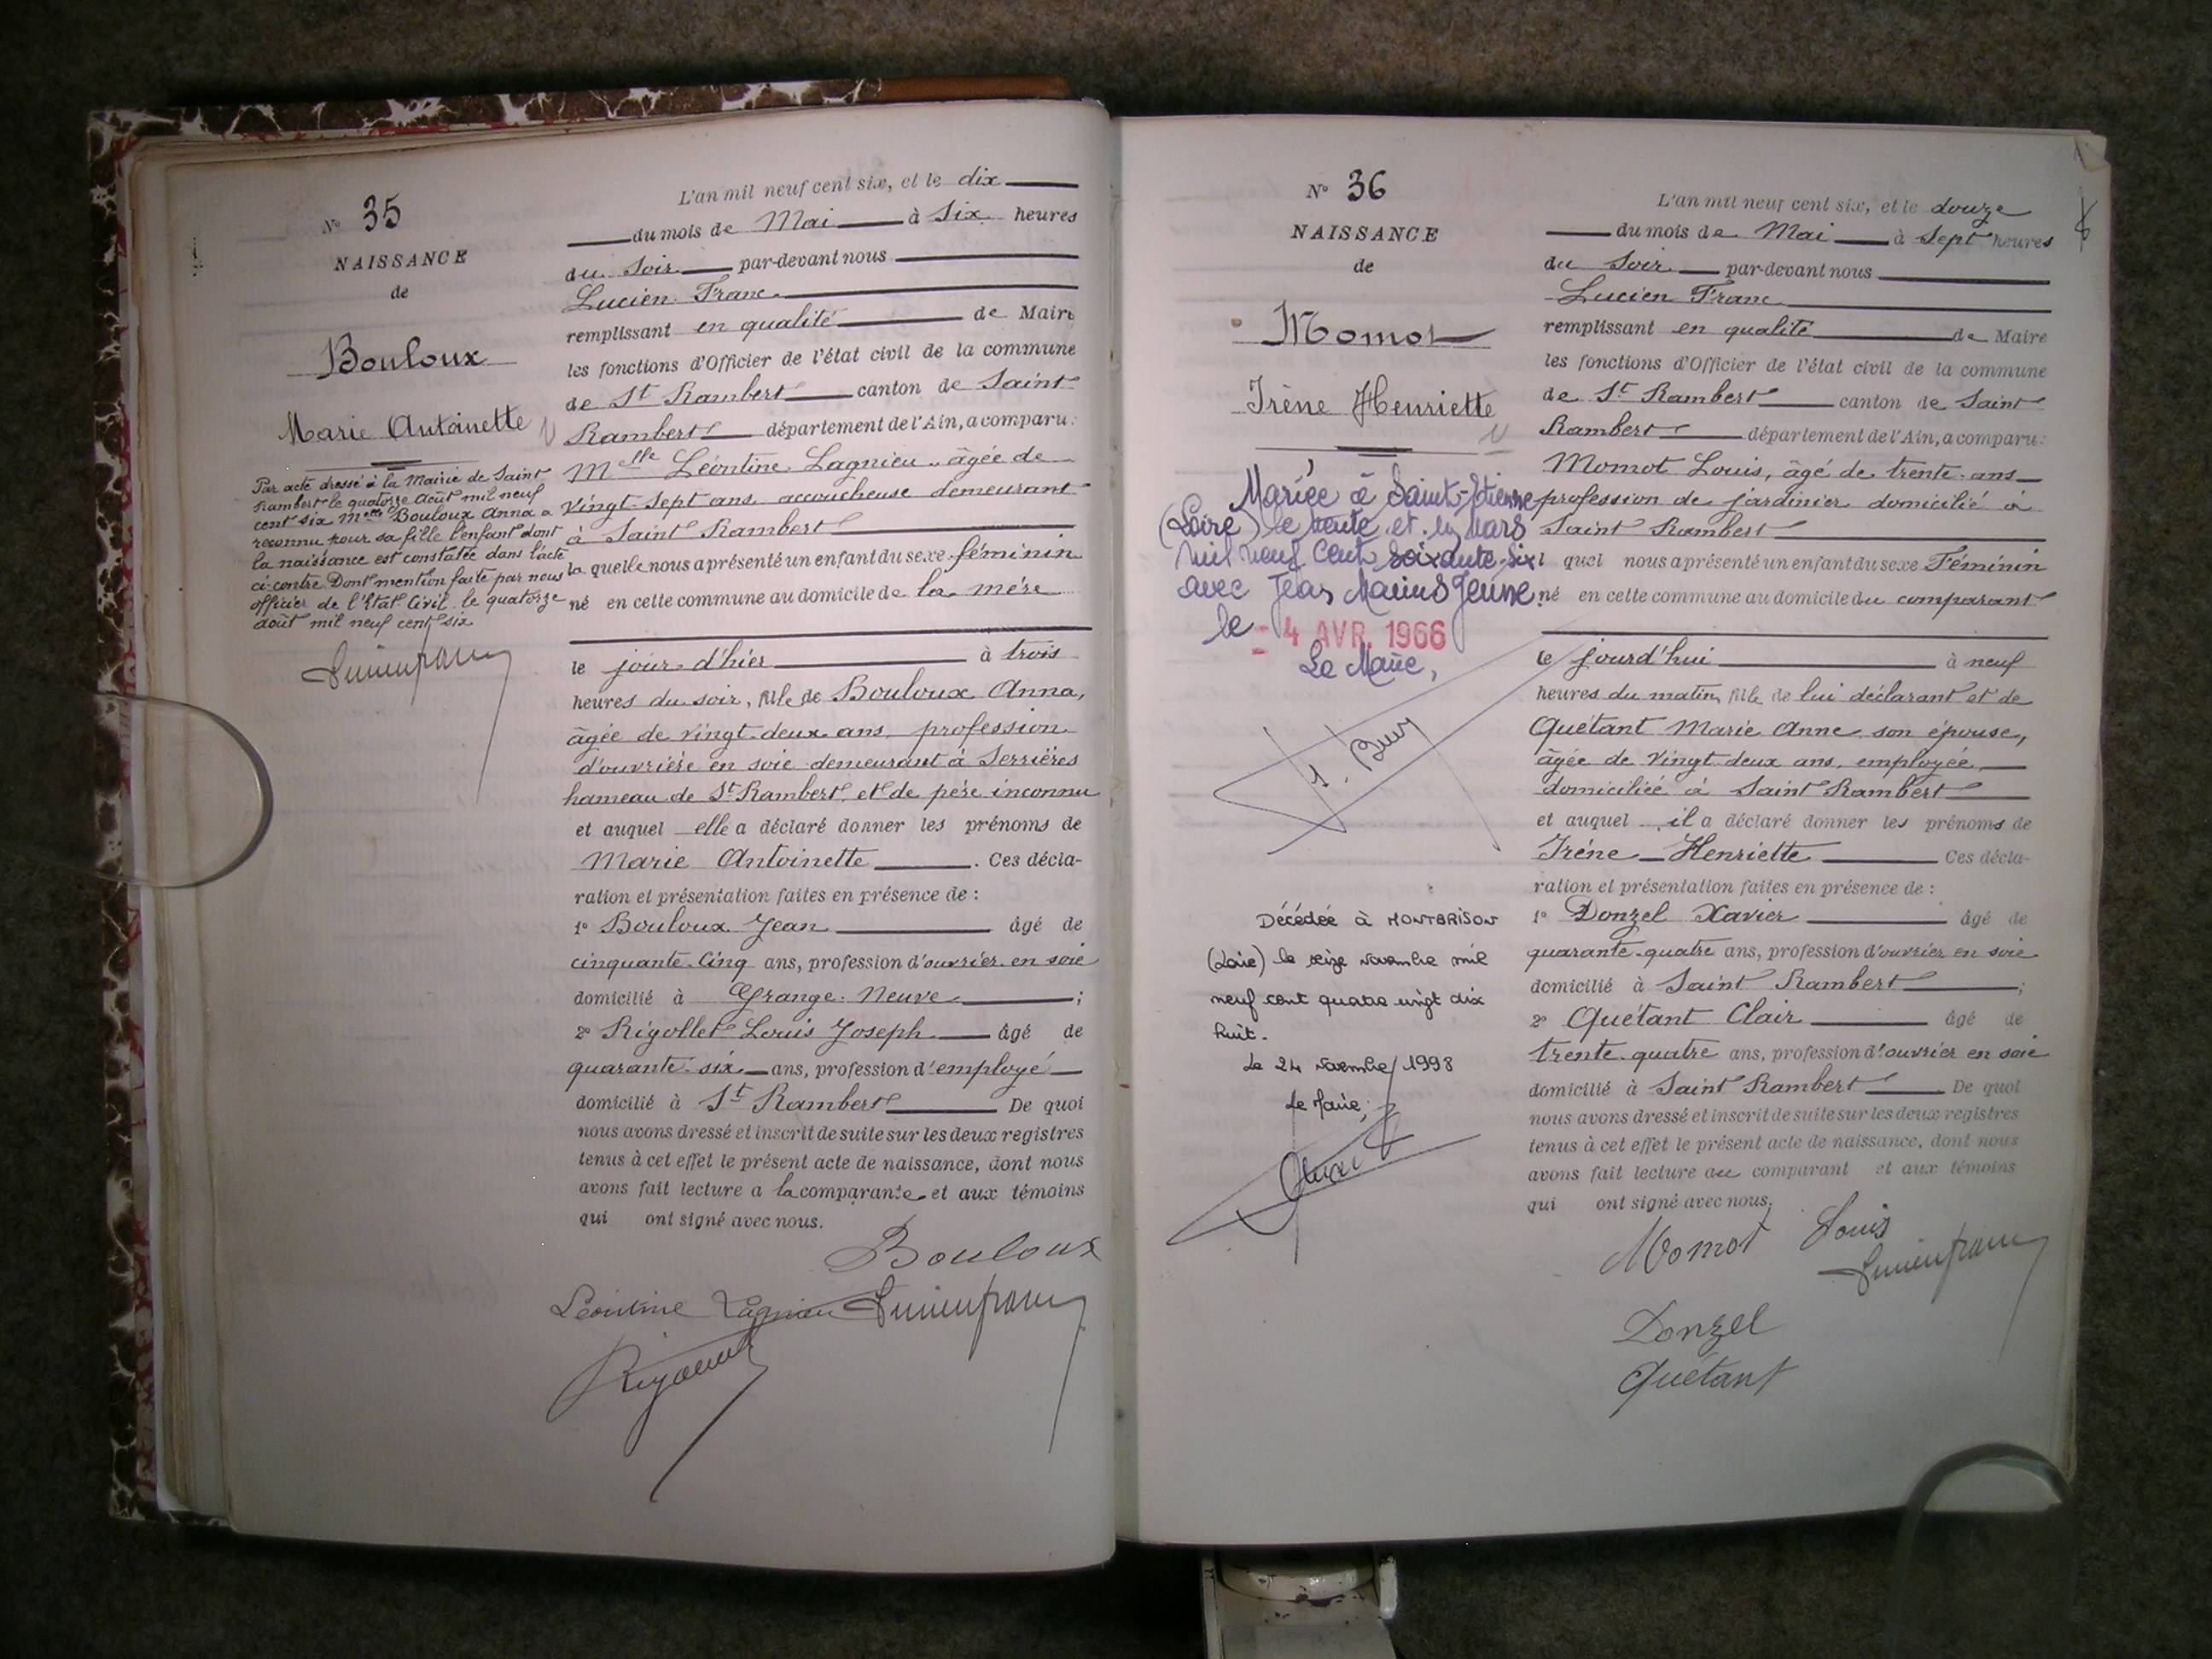 N° 35
NAISSANCE
de
Bouloux
Marie Antoinette
Par acte dressé à la Mairie de Saint
Rambert le quatorze août mil neuf
cent six Melle Bouloux Anna a
reconnu pour sa fille l'enfant dont
la naissance est constatée dans l'acte
ci-contre Dont mention faite par nous
officier de l'Etat Civil le quatorze
août mil neuf cent six
Lucien franc
L'an mil neuf cent six, et le dix
du mois de Mai à Six heures
du Soir par-devant nous
Lucien Franc
remplissant en qualité de Maire
les fonctions d'Officier de l'état civil de la commune
de St Rambert canton de Saint
Rambert département de l'Ain, a comparu:
Melle Léontine Lagnieu âgée de
vingt-sept ans accoucheuse demeurant
à Saint Rambert
la quelle nous a présenté un enfant du sexe féminin
né en cette commune au domicile de la mère
le jour d'hier à trois
heures du soir, fille de Bouloux Anna,
âgée de vingt-deux ans profession
d'ouvrière en soie demeurant à Serrières
hameau de St Rambert et de père inconnu
et auquel elle a déclaré donner les prénoms de
Marie Antoinette. Ces décla-
ration et présentation faites en présence de :
1° Bouloux Jean âgé de
cinquante-cinq ans, profession d'ouvrier en soie
domicilié à Grange-Neuve ;
2° Rigollet Louis Joseph âgé de
quarante-six ans, profession d'employé
domicilié à St Rambert De quoi
nous avons dressé et inscrit de suite sur les deux registres
tenus à cet effet le présent acte de naissance, dont nous
avons fait lecture a la comparante et aux témoins
qui ont signé avec nous.
Bouloux
Léontine Lagnieu Lucien franc
N° 36
NAISSANCE
de
Momot
Irène Henriette
Mariée à Saint-Etienne
(Loire) le trente et un Mars
mil neuf cent soixante-six
avec Jean Marius Jeune
le - 4 AVR. 1966
Le Maire,
Décédée à MONTBRISON
(Loire) le seize novembre mil
neuf cent quatre vingt dix
huit.
Le 24 novembre 1998
Le Maire,
L'an mil neuf cent six, et le douze
du mois de Mai à Sept heures
du Soir par-devant nous
Lucien Franc
remplissant en qualité de Maire
les fonctions d'Officier de l'état civil de la commune
de St Rambert canton de Saint
Rambert département de l'Ain, a comparu:
Momot Louis, âgé de trente ans
profession de jardinier domicilié à
Saint Rambert
l quel nous a présenté un enfant du sexe Féminin
né en cette commune au domicile du comparant
le jourd'hui à neuf
heures du matin, fille de lui déclarant et de
Quétant Marie Anne son épouse,
âgée de vingt-deux ans, employée
domiciliée à Saint Rambert
et auquel il a déclaré donner les prénoms de
Irène Henriette Ces décla-
ration et présentation faites en présence de :
1° Donzel Xavier âgé de
quarante-quatre ans, profession d'ouvrier en soie
domicilié à Saint Rambert ;
2° Quétant Clair âgé de
trente-quatre ans, profession d'ouvrier en soie
domicilié à Saint Rambert De quoi
nous avons dressé et inscrit de suite sur les deux registres
tenus à cet effet le présent acte de naissance, dont nous
avons fait lecture au comparant et aux témoins
qui ont signé avec nous.
Momot Louis
Lucien franc
Donzel
Quétant